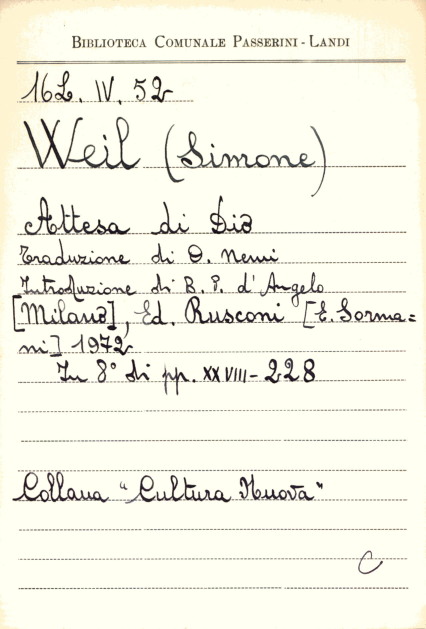 BIBLIOTECA COMUNALE PASSERINI - LANDI
16L. IV. 52
Weil (Simone)
Attesa di Dio
Traduzione di O. Nemi
Introduzione di B. P. d'Angelo
[Milano], Ed. Rusconi [E. Sorma=
ni] 1972
In 8° di pp. XXVIII - 228
Collana "Cultura Nuova"
C